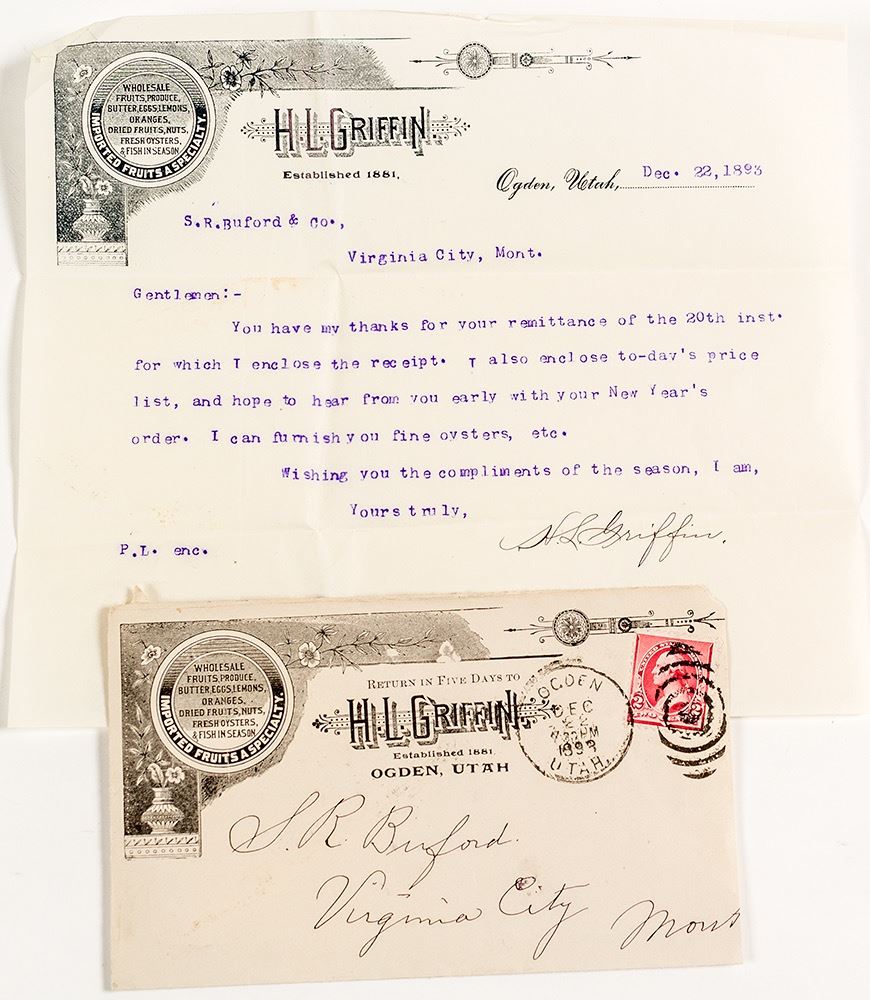 WHOLESALE
FRUITS, PRODUCE,
BUTTER, EGGS, LEMONS,
ORANGES,
DRIED FRUITS, NUTS,
FRESH OYSTERS,
& FISH IN SEASON
IMPORTED FRUITS A SPECIALTY.
H.L. GRIFFIN
Established 1881.
Ogden, Utah, Dec. 22, 1893
S.R.Buford & Co.,
Virginia City, Mont.
Gentlemen:-
You have my thanks for your remittance of the 20th inst.
for which I enclose the receipt. I also enclose to-day's price
list, and hope to hear from you early with your New Year's
order. I can furnish you fine oysters, etc.
Wishing you the compliments of the season, I am,
Yours truly,
H L Griffin.
P.L. enc.
WHOLESALE
FRUITS, PRODUCE,
BUTTER, EGGS, LEMONS,
ORANGES,
DRIED FRUITS, NUTS,
FRESH OYSTERS,
& FISH IN SEASON
IMPORTED FRUITS A SPECIALTY.
RETURN IN FIVE DAYS TO
H.L. GRIFFIN
Established 1881
OGDEN, UTAH
OGDEN
DEC
22
1893
UTAH
S. R. Buford.
Virginia City Mont